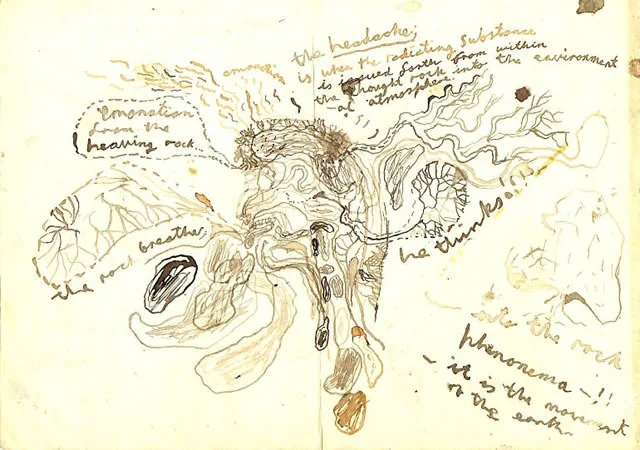 the headache;
is when the radiating substance
is issued forth from within
the thought rock into the environment
- at atmosphere.
emanation
emanation
from the
heaving rock
the rock breathes
he thinks!!!
the rock
phenonema -!!
- it is the movement
of the earth